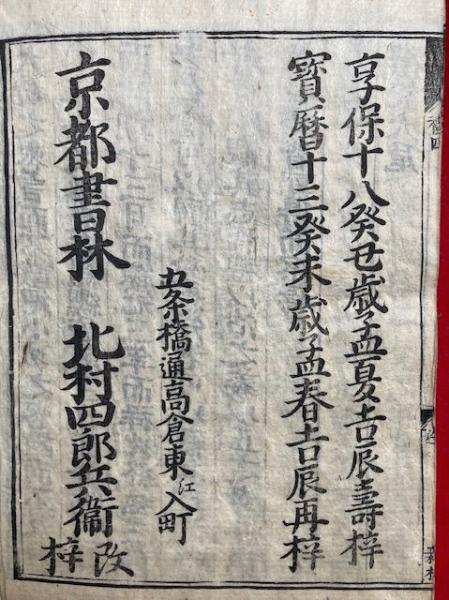 享保十八癸丑歳孟夏吉辰壽梓
寳暦十三癸未歳孟春吉辰再梓
五条橋通高倉東江入町
京都書林 北村四郎兵衞 改梓